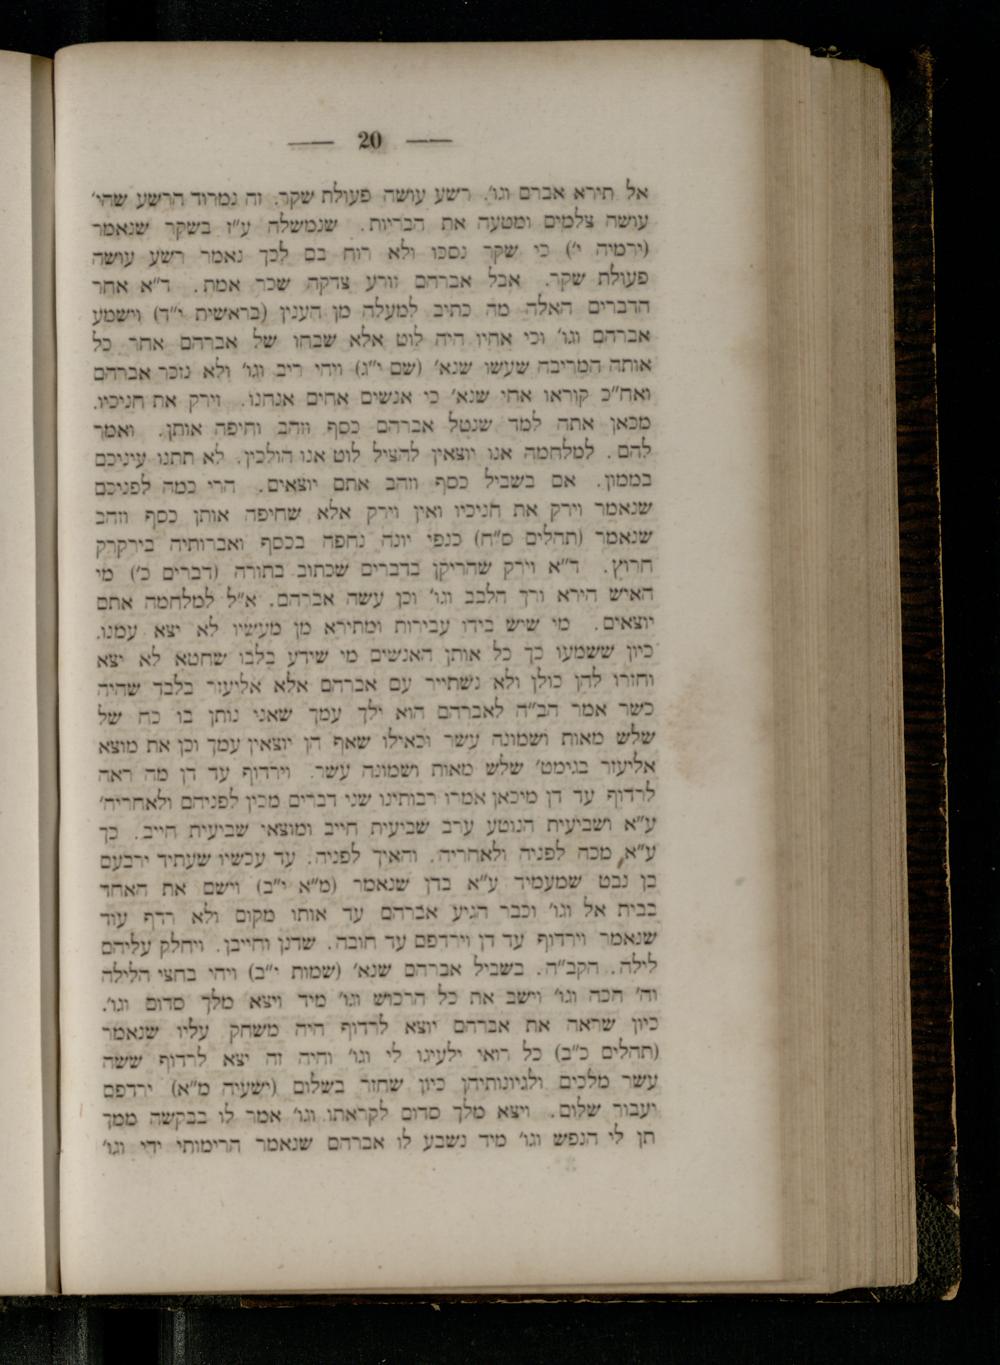 — 20 —
אל תירא אברם וגו׳. רשע עושה פעולת שקר. זה נמרוד הרשע שהי׳
עושה צלמים ומטעה את הבריות. שנמשלה ע״ז בשקר שנאמר
(ירמיה י׳) כי שקר נסכו ולא רוח בם לכך נאמר רשע עושה
פעולת שקר. אבל אברהם זורע צדקה שכר אמת. ד״א אחר
הדברים האלה מה כתיב למעלה מן הענין (בראשית י״ד) וישמע
אברהם וגו׳ וכי אחיו היה לוט אלא שבחו של אברהם אחר כל
אותה המריבה שעשו שנא׳ (שם י״ג) ויהי ריב וגו׳ ולא נזכר אברהם
ואח״כ קוראו אחי שנא׳ כי אנשים אחים אנחנו. וירק את חניכיו.
מכאן אתה למד שנטל אברהם כסף וזהב וחיפה אותן. ואמר
להם. למלחמה אנו יוצאין להציל לוט אנו הולכין. לא תתנו עיניכם
בממון. אם בשביל כסף וזהב אתם יוצאים. הרי כמה לפניכם
שנאמר וירק את חניכיו ואין וירק אלא שחיפה אותן כסף וזהב
שנאמר (תהלים ס״ח) כנפי יונה נחפה בכסף ואברותיה בירקרק
חרוץ. ד״א וירק שהריקן בדברים שכתוב בתורה (דברים כ׳) מי
האיש הירא ורך הלבב וגו׳ וכן עשה אברהם. א״ל למלחמה אתם
יוצאים. מי שיש בידו עבירות ומתירא מן מעשיו לא יצא עמנו.
כיון ששמעו כך כל אותן האנשים מי שידע בלבו שחטא לא יצא
וחזרו להן כולן ולא נשתייר עם אברהם אלא אליעזר בלבד שהיה
כשר אמר הב״ה לאברהם הוא ילך עמך שאני נותן בו כח של
שלש מאות ושמונה עשר וכאילו שאף הן יוצאין עמך וכן את מוצא
אליעזר בגימט׳ שלש מאות ושמונה עשר. וירדוף עד דן מה ראה
לרדוף עד דן מיכאן אמרו רבותינו שני דברים מכין לפניהם ולאחריה׳
ע״א ושביעית הנוטע ערב שביעית חייב ומוצאי שביעית חייב. כך
ע״א, מכה לפניה ולאחריה. והאיך לפניה. עד עכשיו שעתיד ירבעם
בן נבט שמעמיד ע״א בדן שנאמר (מ״א י״ב) וישם את האחד
בבית אל וגו׳ וכבר הגיע אברהם עד אותו מקום ולא רדף עוד
שנאמר וירדוף עד דן וירדפם עד חובה. שדנן וחייבן. ויחלק עליהם
לילה. הקב״ה. בשביל אברהם שנא׳ (שמות י״ב) ויהי בחצי הלילה
וה׳ הכה וגו׳ וישב את כל הרכוש וגו׳ מיד ויצא מלך סדום וגו׳.
כיון שראה את אברהם יוצא לרדוף היה משחק עליו שנאמר
(תהלים כ״ב) כל רואי ילעיגו לי וגו׳ והיה זה יצא לרדוף ששה
עשר מלכים ולגיונותיהן כיון שחזר בשלום (ישעיה מ״א) ירדפם
יעבור שלום. ויצא מלך סדום לקראתו וגו׳ אמר לו בבקשה ממך
תן לי הנפש וגו׳ מיד נשבע לו אברהם שנאמר הרימותי ידי וגו׳